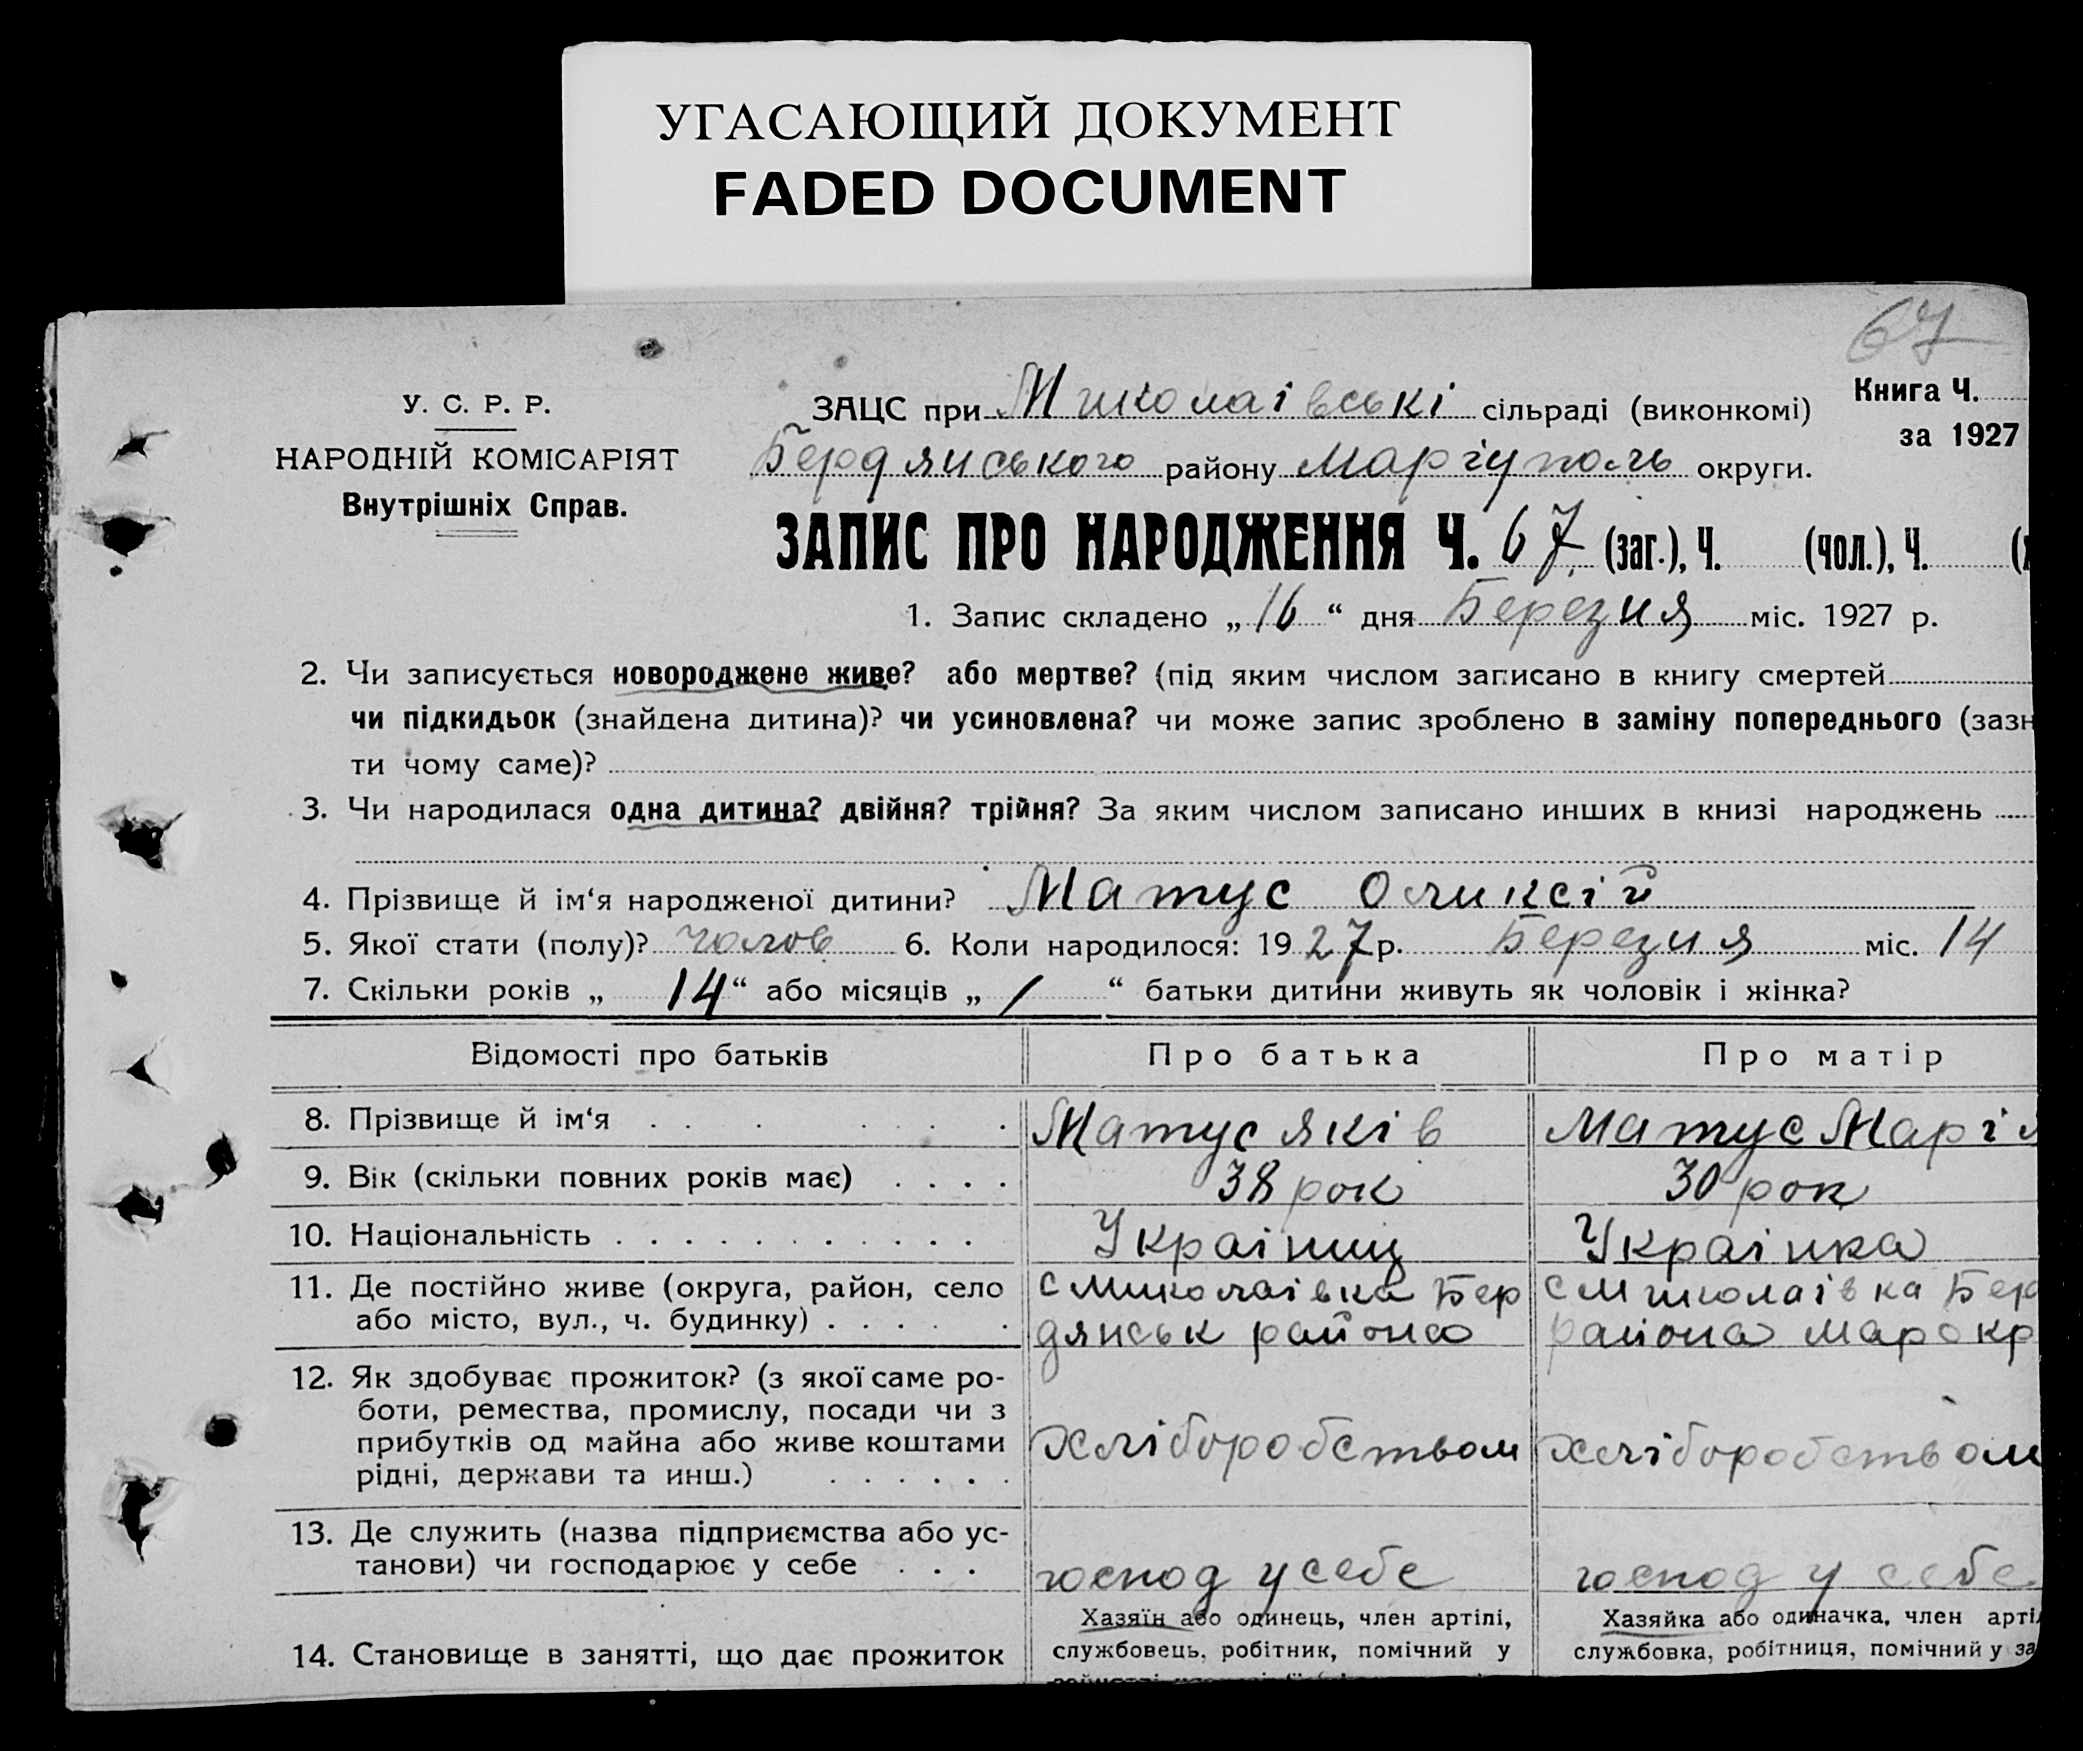 УГАСАЮЩИЙ ДОКУМЕНТ
FADED DOCUMENT
67
У. С. Р. Р.
НАРОДНІЙ КОМІСАРІЯТ
Внутрішніх Справ.
ЗАЦС при Миколаівські сільраді (виконкомі)
Книга Ч.
за 1927
Бердянського району Маріуполь округи.
ЗАПИС ПРО НАРОДЖЕННЯ Ч. 67 (заг.), Ч. (чол.), Ч.
1. Запис складено „ 16 “ дня Березня міс. 1927 р.
2. Чи записується новороджене живе? або мертве? (під яким числом записано в книгу смертей
чи підкидьок (знайдена дитина)? чи усиновлена? чи може запис зроблено в заміну попереднього (зазн
ти чому саме)?
3. Чи народилася одна дитина? двійня? трійня? За яким числом записано инших в книзі народжень
4. Прізвище й ім‘я народженої дитини? Матус Оликсій
5. Якої стати (полу)? чолов 6. Коли народилося: 1927 р. Березня міс. 14
7. Скільки років „ 14 “ або місяців „ / “ батьки дитини живуть як чоловік і жінка?
Відомості про батьків Про батька Про матір
8. Прізвище й ім‘я Матус Яків Матус Марія
9. Вік (скільки повних років має) 38 рок 30 рок
10. Національність Украіниц Украінка
11. Де постійно живе (округа, район, село с Миколаівка Бер с Миколаівка Бер
або місто, вул., ч. будинку) дянськ района района Мар окр
12. Як здобуває прожиток? (з якої саме ро-
боти, ремества, промислу, посади чи з
прибутків од майна або живе коштами хліборобством хліборобством
рідні, держави та инш.)
13. Де служить (назва підприємства або ус-
танови) чи господарює у себе господ у себе господ у себе
Хазяїн або одинець, член артілі, Хазяйка або одиначка, член арті
14. Становище в занятті, що дає прожиток службовець, робітник, помічний у службовка, робітниця, помічний у за